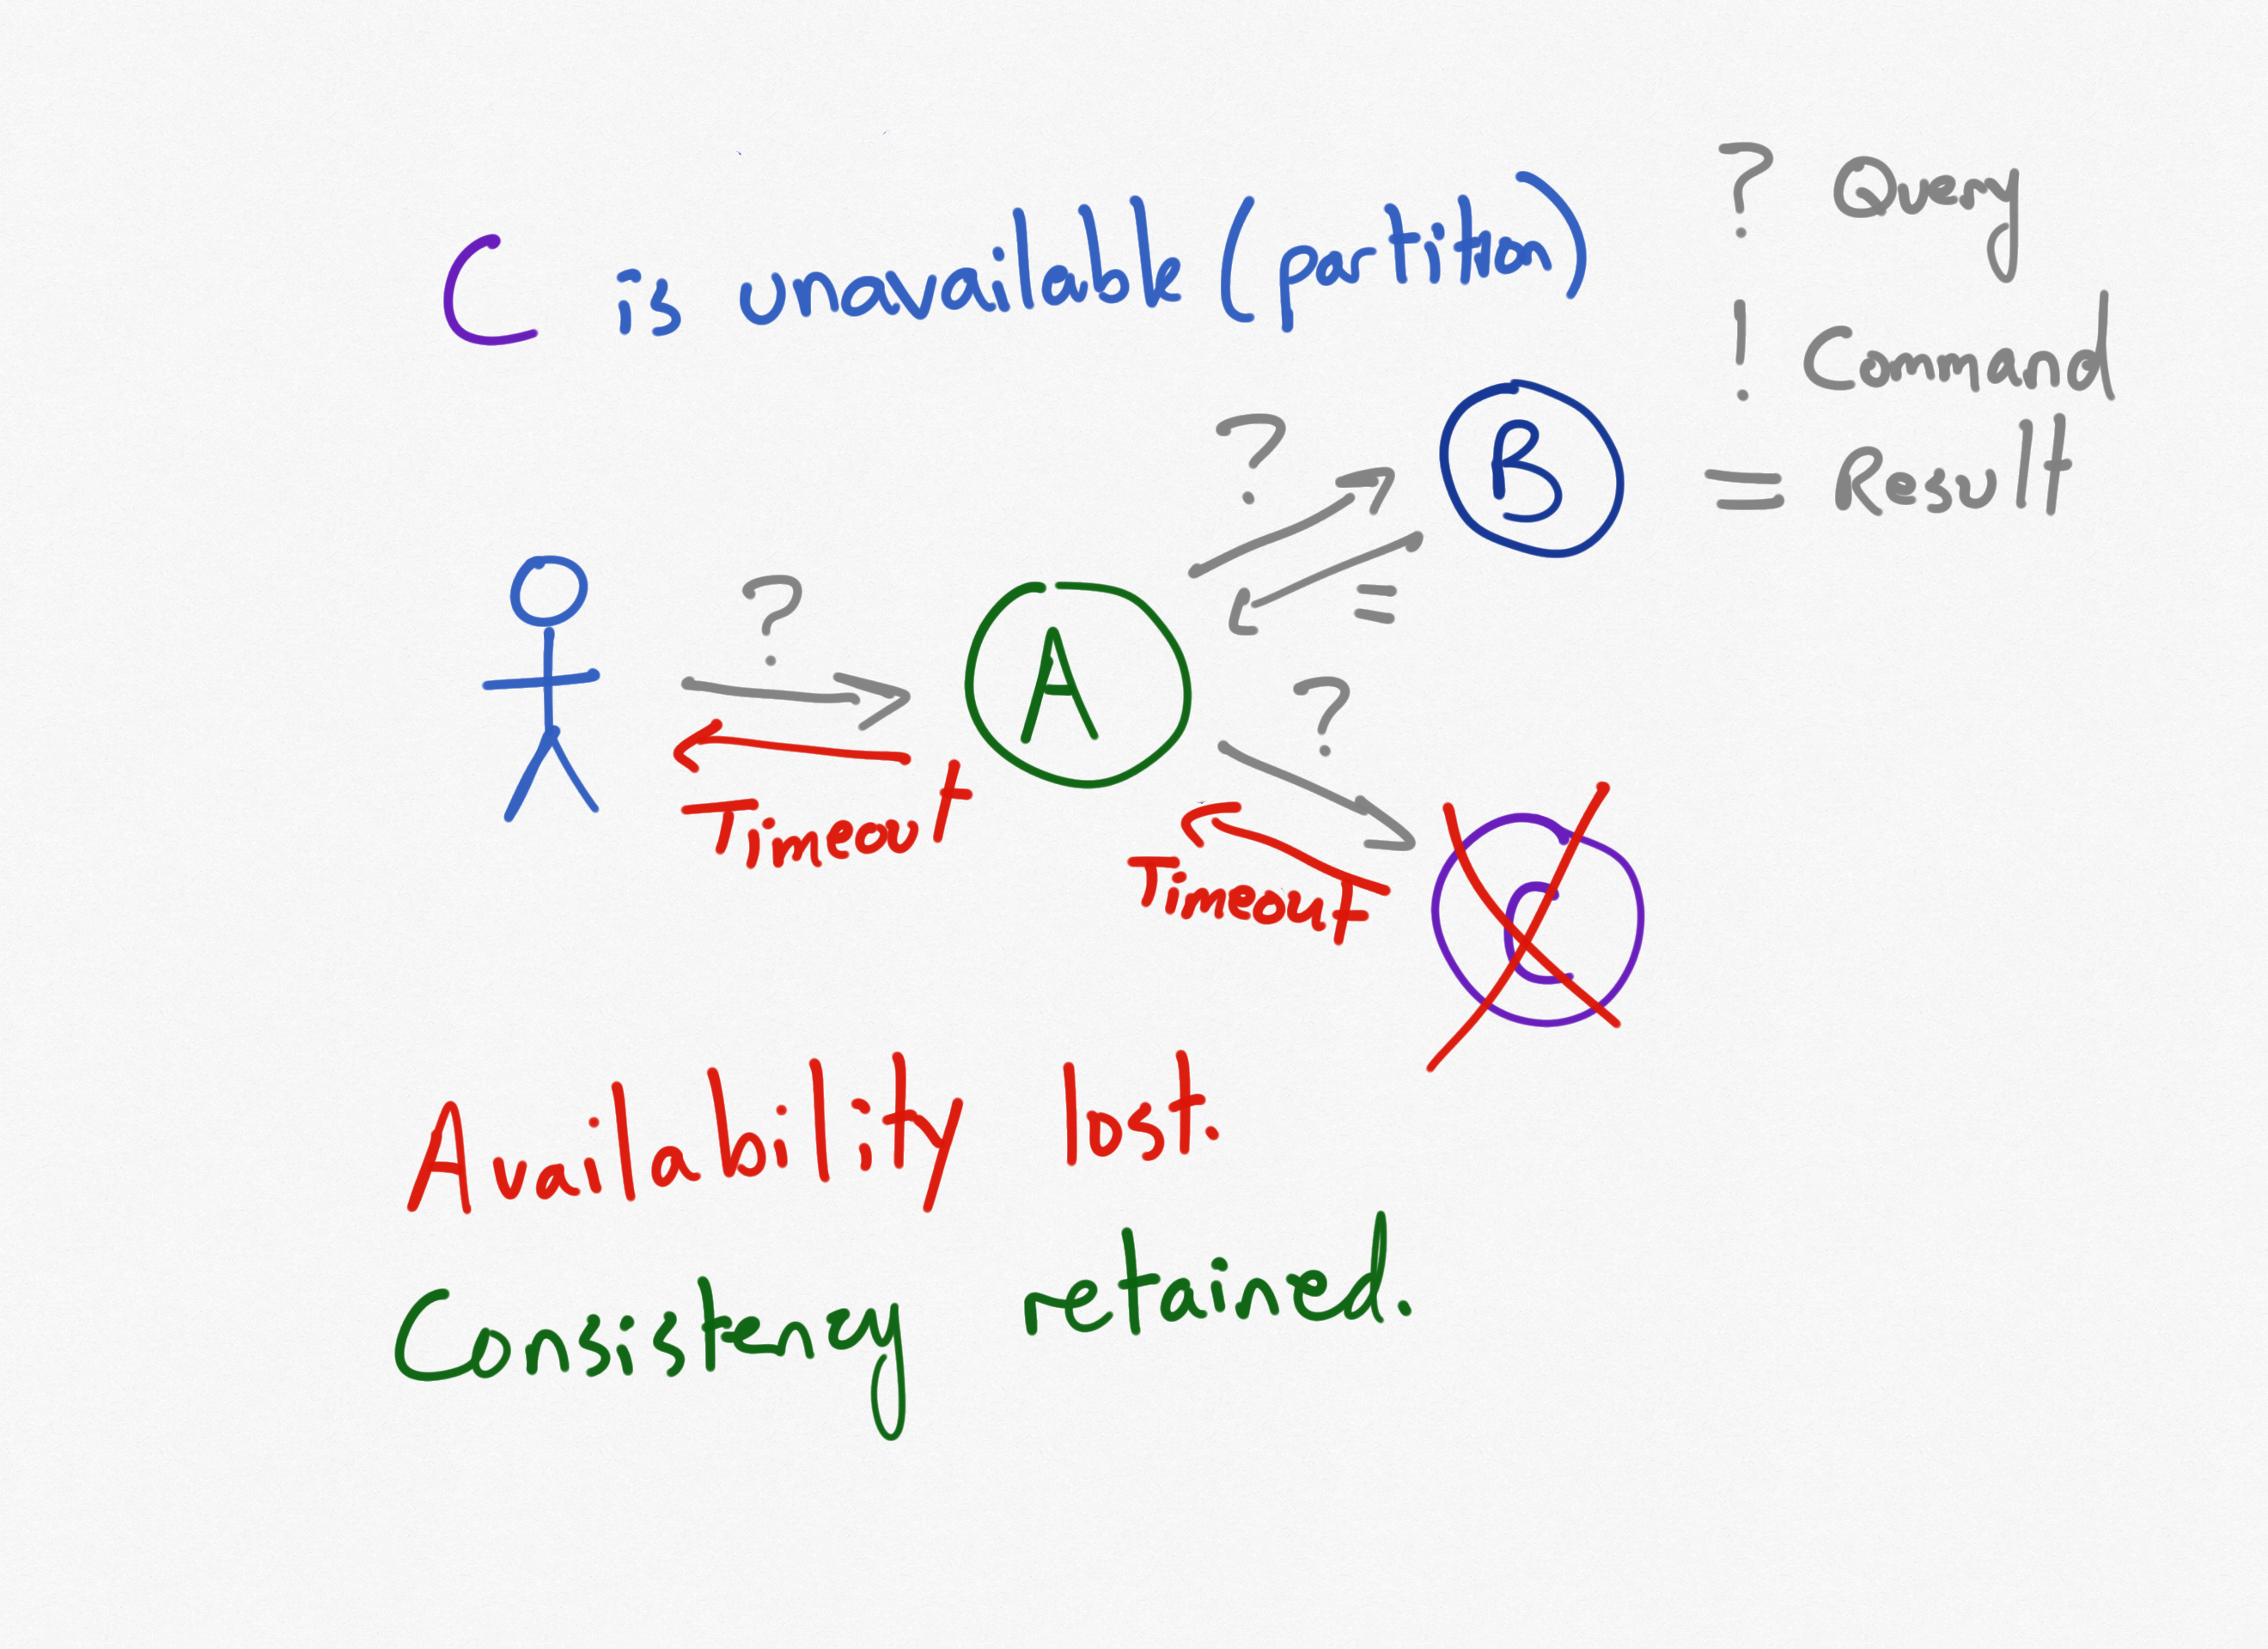 C is unavailable (partition)
? Query
! Command
= Result
?
B
=
?
A
?
Timeout
Timeout
C
Availability lost.
Consistency retained.